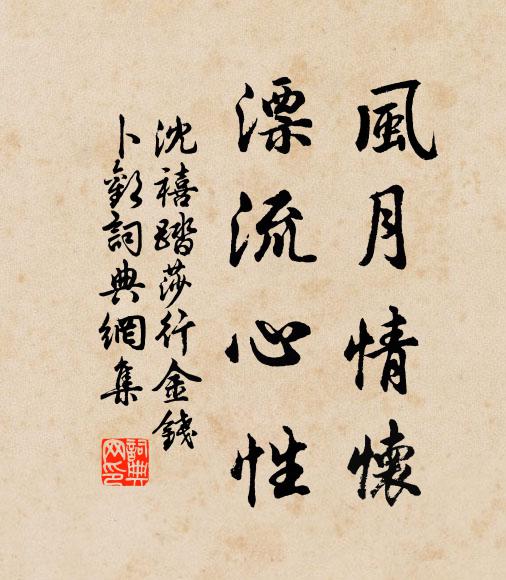 風月情懷
漂流心性
沈禧踏莎行金錢
卜歡詞典網集
詞典網印